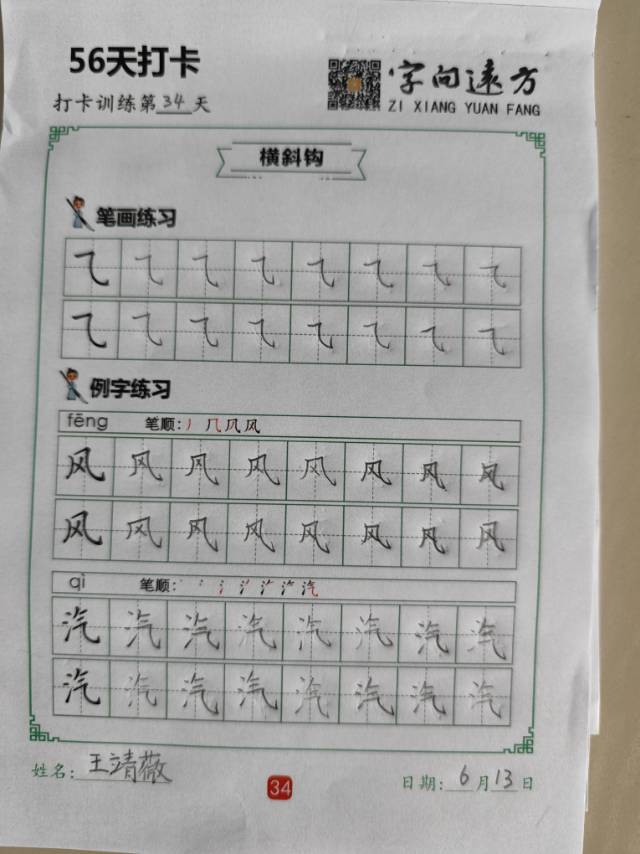 56天打卡
打卡训练第34天
字向远方
ZI XIANG YUAN FANG
横斜钩
笔画练习
⺄ ⺄ ⺄ ⺄ ⺄ ⺄ ⺄ ⺄
⺄ ⺄ ⺄ ⺄ ⺄ ⺄ ⺄ ⺄
例字练习
fēng 笔顺:丿 几 风 风
风 风 风 风 风 风 风 风
风 风 风 风 风 风 风 风
qì 笔顺:
汽 汽 汽 汽 汽 汽 汽 汽
汽 汽 汽 汽 汽 汽 汽 汽
姓名:王靖薇
34
日期:6月13日